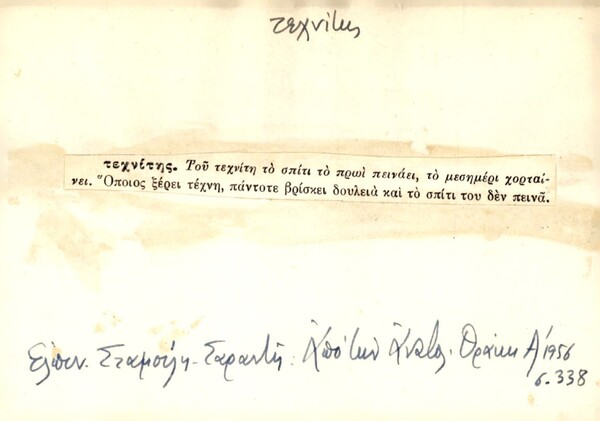 τεχνίτης
τεχνίτης. Τοῦ τεχνίτη τὸ σπίτι τὸ πρωὶ πεινάει, τὸ μεσημέρι χορταί-
νει. Ὅποιος ξέρει τέχνη, πάντοτε βρίσκει δουλειὰ καὶ τὸ σπίτι του δὲν πεινᾶ.
Ἐλπιν. Σταμούλη-Σαραντῆ: Ἀπὸ τὴν Ἀνατολ. Θράκη Α΄ 1956
σ. 338